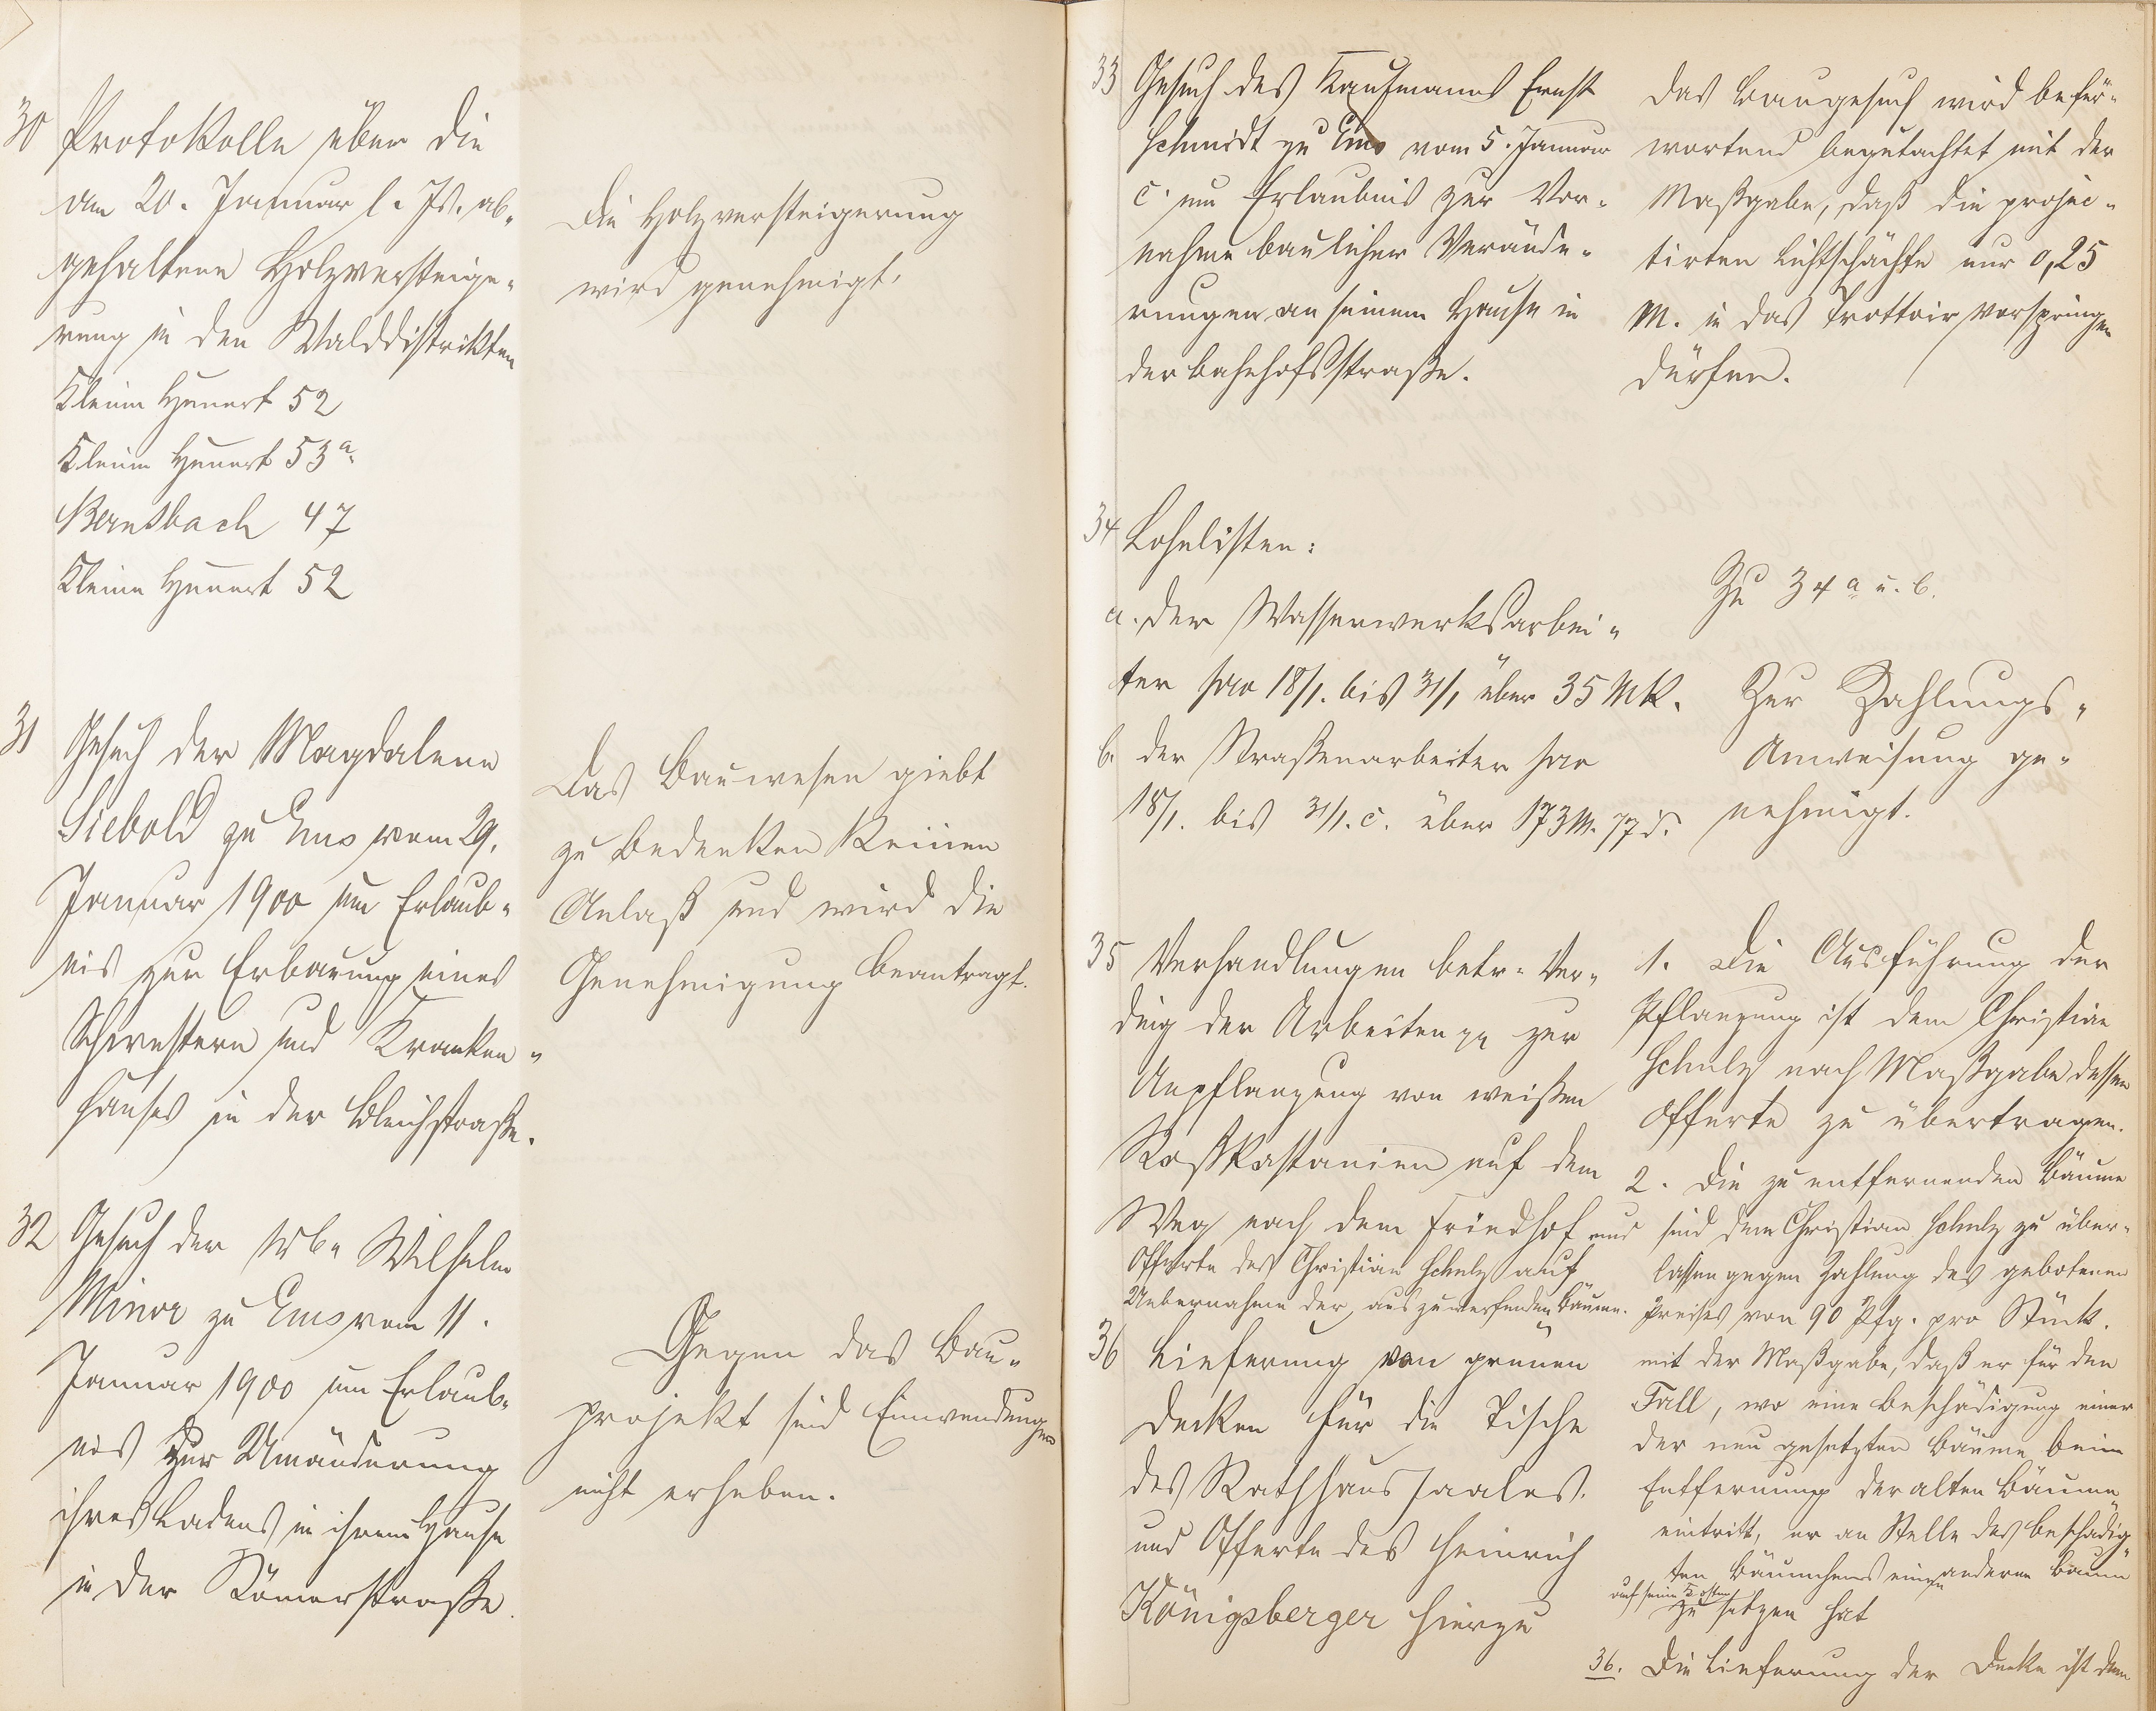 30 Protokolle über die
am 20. Januar l. Js. ab-
gehaltene Holzversteige-
rung in den Walddistrikten
Kleine Hunert 52
Kleine Hunert 53a.
Bernsbach 47
Kleine Hunert 52
Die Holzversteigerung
wird genehmigt.
31 Gesuch der Magdalene
Siebold zu Ems vom 29.
Januar 1900 um Erlaub-
nis zur Erbauung eines
Schwestern und Kranken-
hauses in der Bleichstraße.
Das Bauwesen giebt
zu Bedenken keinen
Anlaß und wird die
Genehmigung beantragt.
32 Gesuch der Wb. Wilhelm
Minor zu Ems vom 11.
Januar 1900 um Erlaub-
nis zur Umänderung
ihres Ladens in ihrem Hause
in der Römerstraße.
Gegen das Bau-
projekt sind Einwendungen
nicht erheben.
33 Gesuch des Kaufmanns Ernst
Schmidt zu Ems vom 5. Januar
c. um Erlaubnis zur Vor-
nahme baulicher Verände-
rungen an seinem Hause in
der Bahnhofsstraße.
Das Baugesuch wird befür-
wortend begutachtet mit der
Maßgabe, daß die projec-
tirten Lichtschächte nur 0,25
M. in das Trottoir vorspringen
dürfen.
34 Lohnlisten:
a. der Wasserwerksarbei-
ter pro 18/1. bis 31/1 über 35 Mk.
b. der Straßenarbeiter pro
18/1. bis 31/1. c. über 173 M. 77 d.
Zu 34 a u. b.
Zur Zahlungs-
Anweisung ge-
nehmigt.
35 Verhandlungen betr. Ver-
ding der Arbeiten pp zur
Anpflanzung von weißen
Roßkastanien auf dem
Weg nach dem Friedhof und
Offerte des Christian Schulz auf
Uebernahme der auszuwerfenden Bäume.
1. Die Ausführung der
Pflanzung ist dem Christian
Schulz nach Maßgabe dessen
Offerte zu übertragen.
2. Die zu entfernenden Bäume
sind dem Christian Schulz zu über-
lassen gegen Zahlung des gebotenen
Preises von 90 Pfg. pro Stück.
mit der Maßgabe, daß er für den
Fall, wo eine Beschädigung einer
der neu gesetzten Bäume beim
Entfernung der alten Bäume
eintritt, er an Stelle des beschädig-
ten Bäumchens einen anderen Baum
auf seine Kosten
zu setzen hat
36 Lieferung von grünen
Decken für die Tische
des Rathhaussaales.
und Offerte des Heinrich
Königsberger hierzu
36. Die Lieferung der Decke ist dem